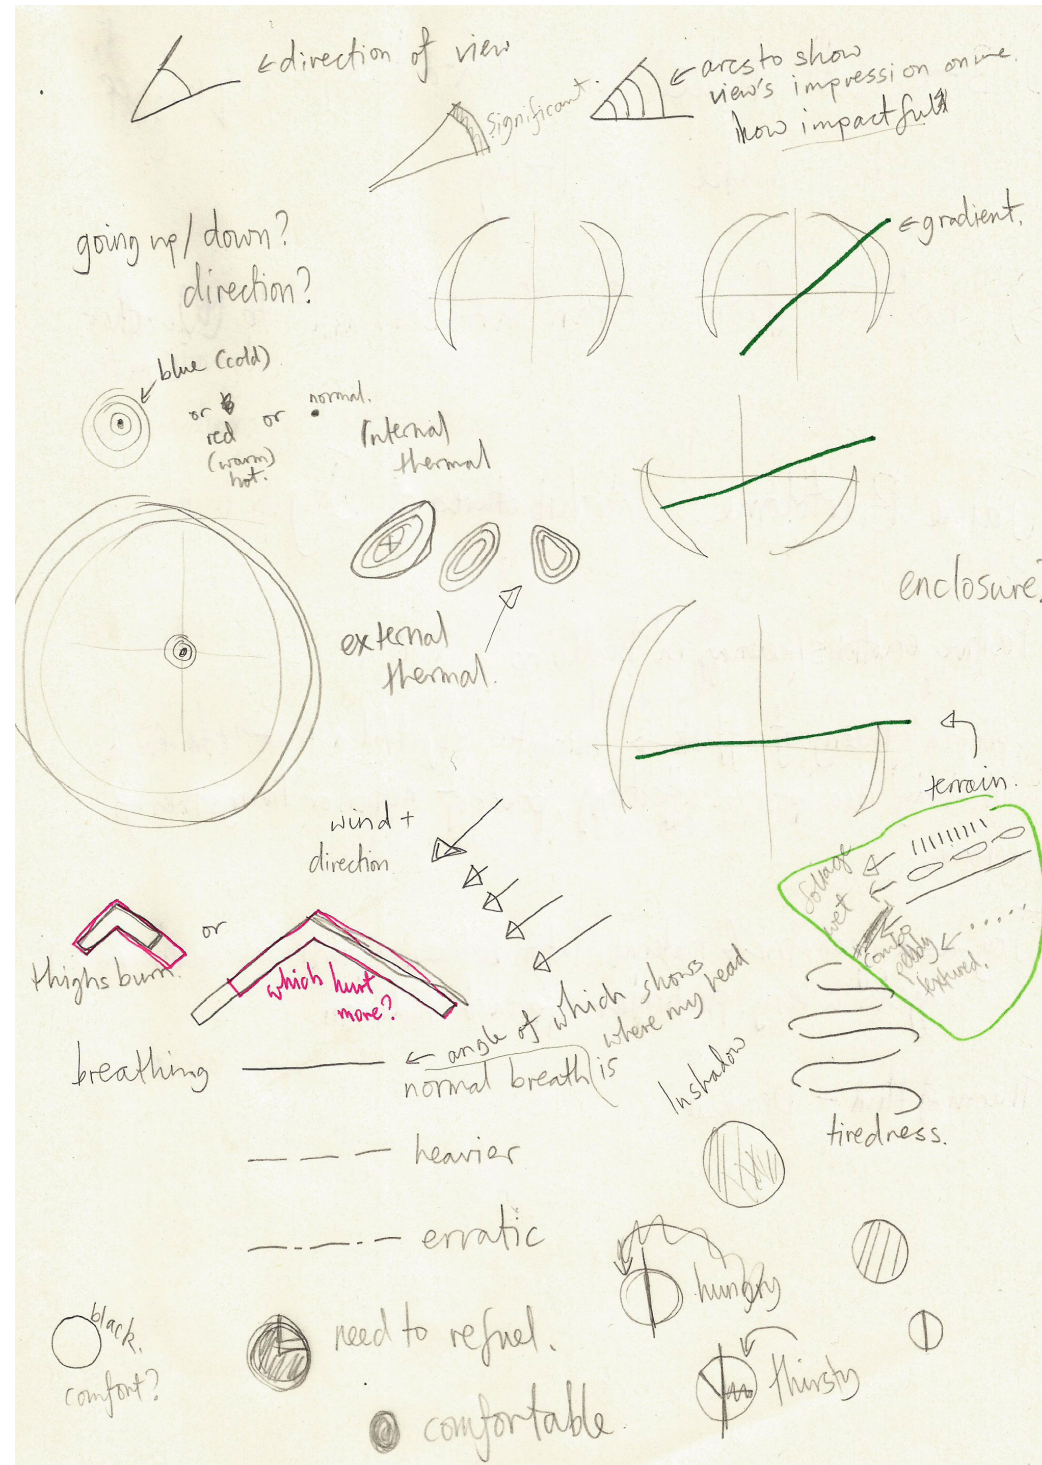 direction of view
arcs to show
view's impression on me.
how impactful
significant.
going up/down?
direction?
gradient.
blue (cold)
or
red
(warm)
hot.
or
normal.
Internal
thermal
external
thermal.
enclosure?
terrain.
wind +
direction
foliage
wet
combo
pebbly
textured.
or
thighs burn.
which hurt
more?
breathing
angle of which shows
where my head
is
normal breath
In shadow
tiredness.
heavier
erratic
hungry
black.
comfort?
need to refuel.
thirsty
comfortable.